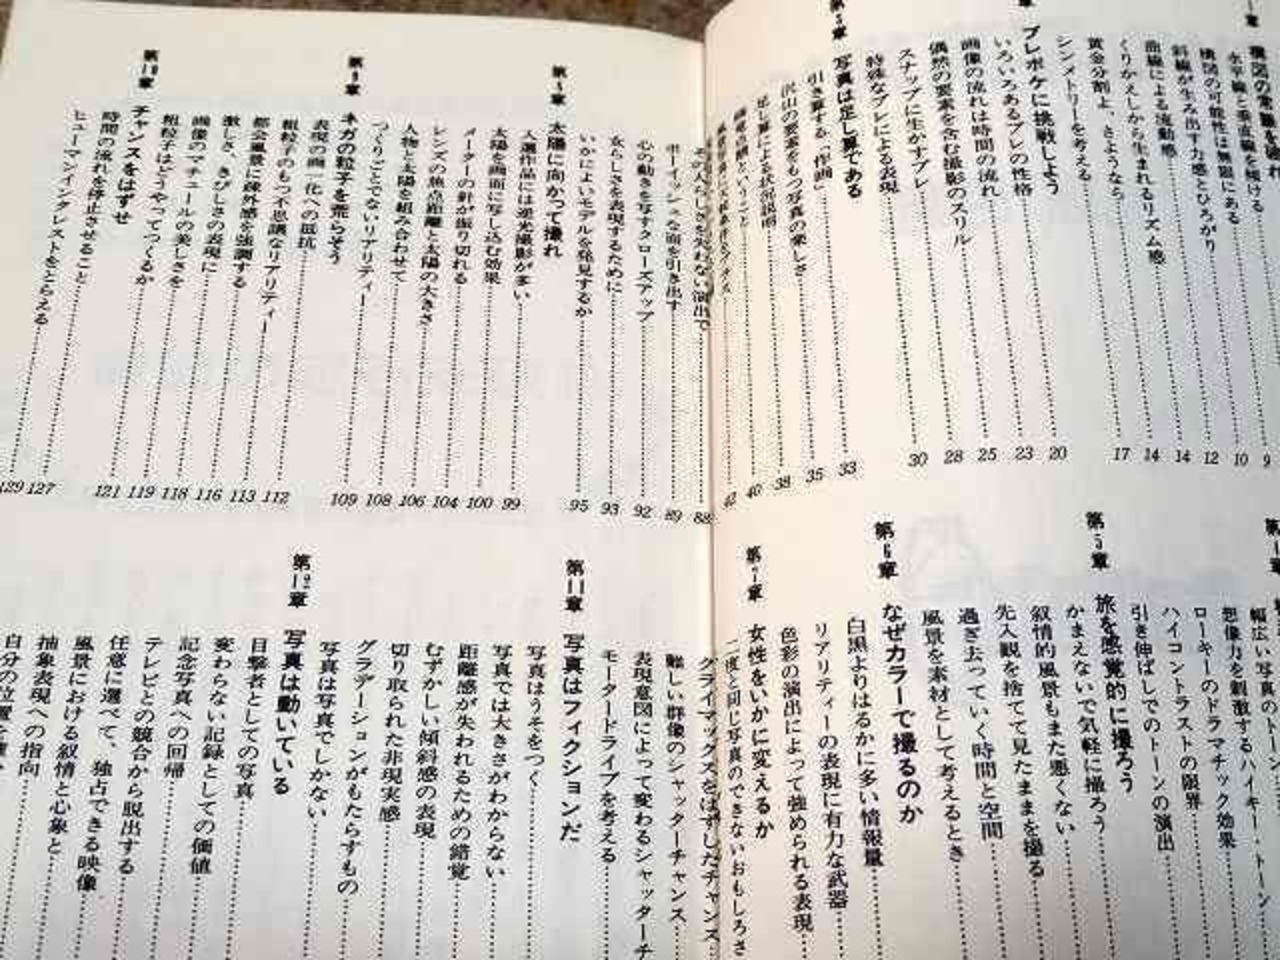 水平線と垂直線を傾ける 10
構図の可能性は無限にある 12
斜線が生み出す力感とひろがり 14
曲線による流動感 14
くりかえしから生まれるリズム感 17
黄金分割よ、さようなら
シンメトリーを考える 20
ブレボケに挑戦しよう
いろいろあるブレの性格 23
画像の流れは時間の流れ 25
偶然の要素を含む撮影のスリル 28
スナップに生かすブレ 30
特殊なブレによる表現
写真は足し算である
引き算する「作画」 33
沢山の要素をもつ写真の楽しさ 35
足し算による状況説明 38
第5章 旅を感覚的に撮ろう
かまえないで気軽に撮ろう
叙情的風景もまた悪くない
先入観を捨てて見たままを撮る
過ぎ去っていく時間と空間
風景を素材として考えるとき
第6章 なぜカラーで撮るのか
白黒よりはるかに多い情報量
リアリティーの表現に有力な武器
色彩の演出によって強められる表現
第7章 女性をいかに変えるか
二度と同じ写真のできないおもしろさ
幅広い写真のトーン
想像力を刺激するハイキー・トーン
ローキーのドラマチック効果
ハイコントラストの限界
引き伸ばしでのトーンの演出
その人らしさを失わない演出で 88
ボーイッシュな面を引き出す 89
心の動きを写すクローズアップ 92
女らしさを表現するために 93
いかによいモデルを発見するか 95
第8章 太陽に向かって撮れ
入選作品には逆光撮影が多い 99
太陽を画面に写し込む効果 100
メーターの針が振り切れる 104
レンズの焦点距離と太陽の大きさ 106
人物と太陽を組み合わせて 108
つくりごとでないリアリティー 109
第9章 ネガの粒子を荒らそう
表現の画一化への抵抗 112
粗粒子のもつ不思議なリアリティー 113
都会風景に疎外感を強調する 116
激しさ、きびしさの表現に 118
画像のマチュールの美しさを 119
粗粒子はどうやってつくるか 121
第10章 チャンスをはずせ
時間の流れを停止させること 127
ヒューマンインタレストをとらえる 129
クライマックスをはずしたチャンス
難しい群像のシャッターチャンス
表現意図によって変わるシャッターチ
モータードライブを考える
第11章 写真はフィクションだ
写真はうそをつく
写真では大きさがわからない
距離感が失われるための錯覚
むずかしい傾斜感の表現
切り取られた非現実感
グラデーションがもたらすもの
写真は写真でしかない
第12章 写真は動いている
目撃者としての写真
変わらない記録としての価値
記念写真への回帰
テレビとの競合から脱出する
任意に選べて、独占できる映像
風景における叙情と心象と
抽象表現への指向
自分の位置を